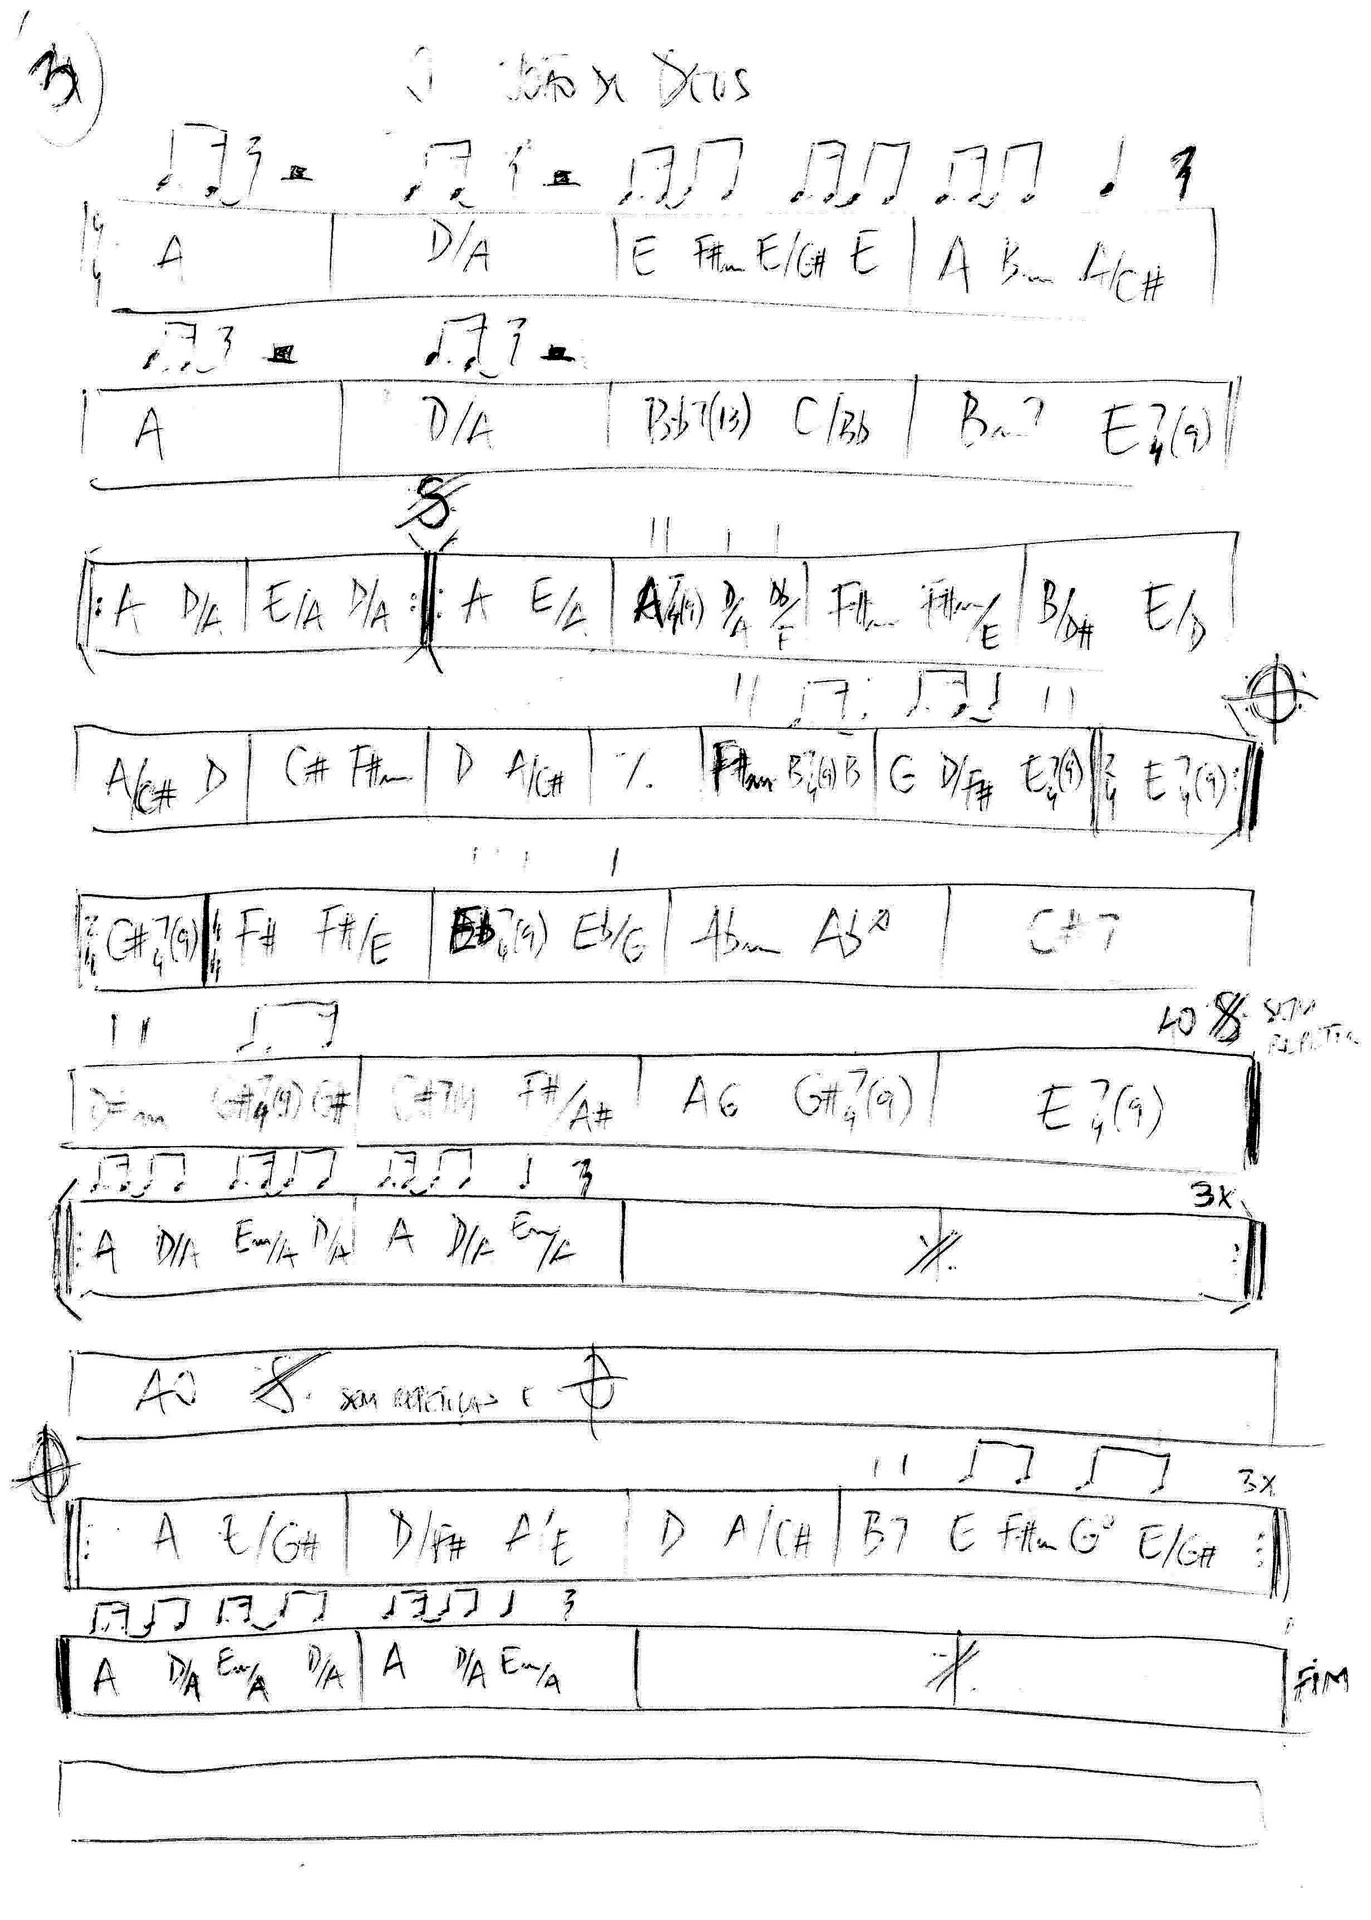 3
João de Deus
4/4 A | D/A | E F#m E/G# E | A Bm A/C#
A | D/A | Bb7(13) C/Bb | Bm7 E7/4(9)
A D/A | E/A D/A A E/A | A7/4(9) D/A Db/F | F#m F#m/E | B/D# E/D
A/C# D | C# F#m | D A/C# | ٪ | F#m B7/4(9) B | G D/F# E7/4(9) 2/4 E7/4(9)
2/4 G#7/4(9) 4/4 F# F#/E | Eb7/4(9) Eb/G | Abm Abº | C#7
AO SEM
D#m G#7/4(9) G# | C#7M F#/A# | A6 G#7/4(9) | E7/4(9)
3x
A D/A Em/A D/A | A D/A Em/A
AO SEM REPETIÇÃO E
3x
A E/G# | D/F# A/E | D A/C# | B7 E F#m Gº E/G#
A D/A Em/A D/A | A D/A Em/A | FIM